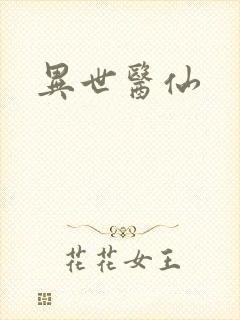 異世醫仙
花花女王